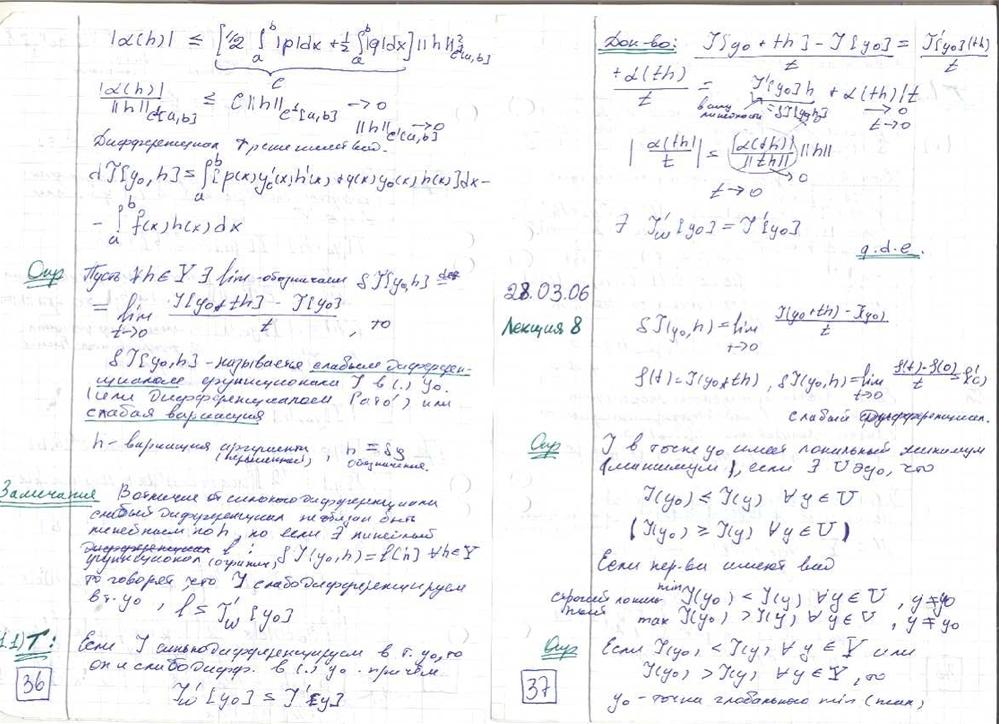 |α(h)| ≤ [1/2 ∫_a^b |p|dx + 1/2 ∫_a^b |q|dx] ||h||²_{C¹[a,b]}
C
|α(h)| / ||h||_{C¹[a,b]} ≤ C||h||_{C¹[a,b]} → 0
||h||_{C¹[a,b]} → 0
Дифференциал имеет вид.
dJ[y₀,h] = ∫_a^b [p(x)y₀'(x)h'(x) + q(x)y₀(x)h(x)]dx −
− ∫_a^b f(x)h(x)dx
Опр Пусть ∀h∈Y ∃ lim - обозначаем δJ[y₀,h] def
= lim_{t→0} (J[y₀+th] − J[y₀]) / t, то
δJ[y₀,h] - называется слабым дифферен-
циалом функционала J в (.) y₀.
(или дифференциалом Гато) или
слабая вариация
h - вариация аргумента (переменной), h ≡ δy
обозначение.
Замечание В отличие от сильного дифференциала
слабый дифференциал не обязан быть
линейным по h, но если ∃ линейный
функционал (огранич.) : δJ(y₀,h) = l(h) ∀h∈Y
то говорят что J слабо дифференцируем
в т. y₀, l ≡ J'_w[y₀]
1.1) Т: Если J сильно дифференцируем в т. y₀, то
он и слабо дифф. в (.) y₀ причем
J'_w[y₀] = J'[y]
36
Док-во: (J[y₀+th] − J[y₀]) / t = J'[y₀](th) / t
+ α(th)/t = J'[y₀]h + α(th)/t
ввиду линейности = δJ[y₀,h]
→ 0
t→0
|α(th)/t| = |α(th)| / ||th|| ||h||
→ 0
t→0
∃ J'_w[y₀] = J'[y₀]
q.d.e.
28.03.06
Лекция 8
δJ(y₀,h) = lim_{t→0} (J(y₀+th) − J(y₀)) / t
f(t) = J(y₀+th), δJ(y₀,h) = lim_{t→0} (f(t) − f(0)) / t = f'(0)
слабый дифференциал.
Опр J в точке y₀ имеет локальный минимум
(максимум), если ∃ U∋y₀, что
J(y₀) ≤ J(y) ∀y∈U
(J(y₀) ≥ J(y) ∀y∈U)
Если нер-ва имеют вид
строгий локальн. min J(y₀) < J(y) ∀y∈U, y≠y₀
max J(y₀) > J(y) ∀y∈U, y≠y₀
Опр Если J(y₀) < J(y) ∀y∈Y или
J(y₀) > J(y) ∀y∈Y, то
y₀ - точка глобального min (max)
37